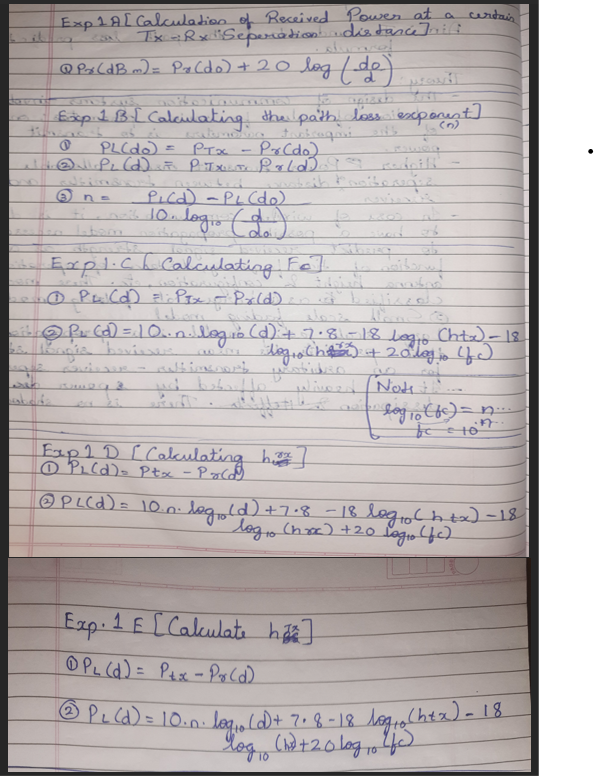 Exp 1 A [ Calculation of Received Power at a certain
Tx - Rx Seperation distance ]
① Pr(dBm) = Pr(do) + 20 log (do/d)
Exp. 1 B [ Calculating the path loss exponent ]
(n)
① PL(do) = PTx - Pr(do)
② PL(d) = PTx - Pr(d)
③ n = PL(d) - PL(do) / 10. log10 (d/do)
Exp 1. C [ Calculating Fc ]
① PL(d) = PTx - Pr(d)
② PL(d) = 10. n. log10 (d) + 7.8 - 18 log10 (htx) - 18
log10 (hrx) + 20 log10 (fc)
Note
log10 (fc) = n...
fc = 10^n...
Exp 1 D [ Calculating hrx ]
① PL(d) = Ptx - Pr(d)
② PL(d) = 10. n. log10 (d) + 7.8 - 18 log10 (htx) - 18
log10 (hrx) + 20 log10 (fc)
Exp. 1 E [ Calculate hTx ]
① PL(d) = Ptx - Pr(d)
② PL(d) = 10. n. log10 (d) + 7.8 - 18 log10 (htx) - 18
log10 (hr) + 20 log10 (fc)